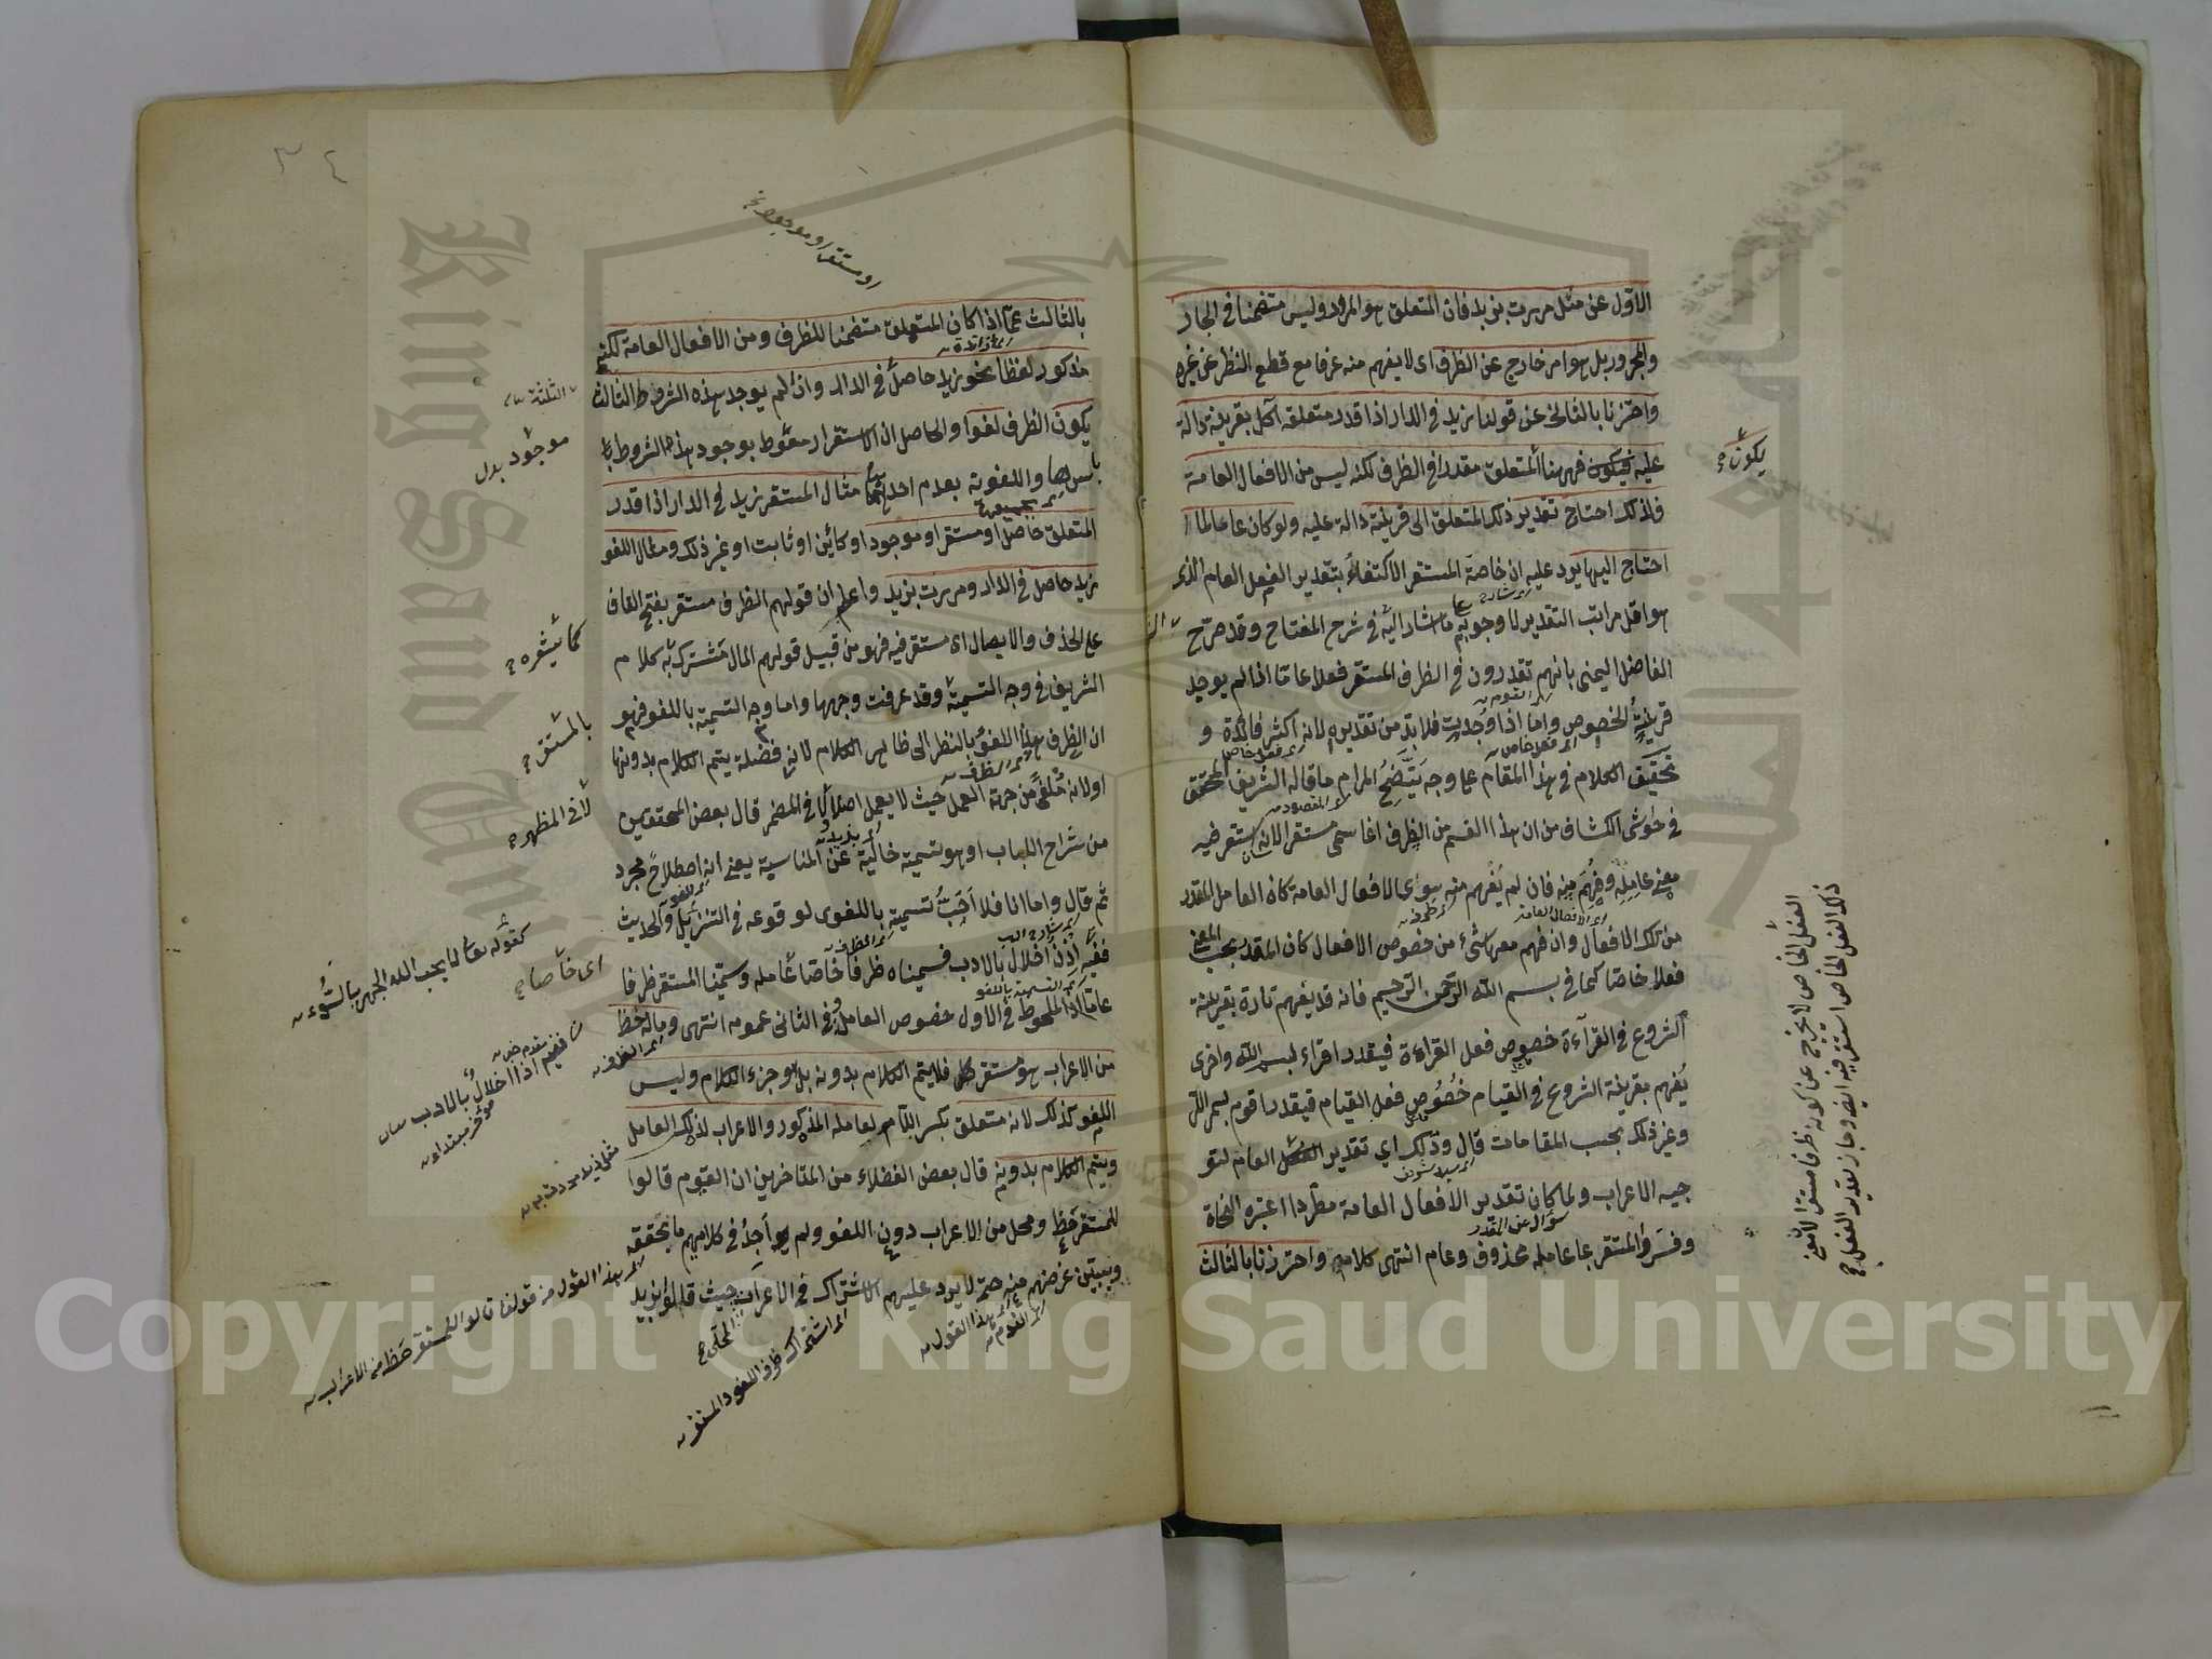 الاول عن مثل مررت بزيد فان المتعلق هو المرور وليس متضمنا في الجار
والمجرور بل هو امر خارج عن الظرف اى لا يفهم منه عرفا مع قطع النظر عن غيره
واحترزنا بالثانى عن قولنا زيد في الدار اذا قدر متعلقه آكل بقرينة دالة
عليه فيكون فهو هنا المتعلق مقدرا في الظرف لكنه ليس من الافعال العامة
فلذلك احتاج تقدير ذلك المتعلق الى قرينة دالة عليه ولو كان عاما لما
احتاج اليها يرد عليه ان خاصة المستقر الاكتفاء بتقدير الفعل العام الذى
هو اقل مراتب التقدير لا وجوبه كما اشار اليه في شرح المفتاح وقد صرّح
الفاضل اليمنى بانهم تقدرون في الظرف المستقر فعلا عامّا اذا لم يوجد
قرينة الخصوص واما اذا وُجدت فلا بدّ من تقديره لانه اكثر فائدة و
تحقيق الكلام في هذا المقام على وجه يتّضح المرام ما قاله الشريف المحقق
في حواشى الكشاف من ان هذا القسم من الظرف انما سمى مستقرا لانه استقر فيه
معنى عامله وفهم منه فان لم يُفهم منه سوى الافعال العامة كان العامل المقدر
من تلك الافعال وان فهم معها شئ من خصوص الافعال كان المقدر بحسب المعنى
فعلا خاصا كما في بسم الله الرحمن الرحيم فانه قد يفهم تارة بقرينة
الشروع في القرآءة خصوص فعل القراءة فيقدر اقراء بسم الله واخرى
يُفهم بقرينة الشروع في القيام خُصُوص فعل القيام فيقدر اقوم بسم الله
وغير ذلك بحسب المقامات قال وذلك اي تقدير الفعل العام لتو
جيه الاعراب ولما كان تقدير الافعال العامة مطّردا اعتبره النحاة
وفسّروا المستقر بما عامله محذوف وعام انتهى كلامه واحترزنا بالثالث
يكون
الفعل الخاص لا يخرج عن كونه ظرفا مستقرا لان معنى
ذلك الفعل الخاص استقر فيه ايضا وجاز تقدير الفعل
او مستقر او موجود
بالثالث عمّا اذا كان المتعلق متضمنا للظرف ومن الافعال العامة لكنه
مذكور لفظا نحو زيد حاصل في الدار وان لم يوجد هذه الشروط الثالث
يكون الظرف لغوا والحاصل ان الاستقرار مشروط بوجود هذه الشروط
باسرها واللغوية بعدم احدها مثال المستقر زيد في الدار اذا قدر
المتعلق حاصل او مستقر او موجود او كائن او ثابت او غير ذلك ومثال اللغو
زيد حاصل في الدار ومررت بزيد واعلم ان قولهم الظرف مستقر بفتح القاف
على الحذف والايصال اى مستقر فيه فهو من قبيل قولهم المال مشترك كلام
الشريف في وجه التسمية وقد عرفت وجهها واما وجه التسمية باللغو فهو
ان الظرف هذا اللغو بالنظر الى ظاهر الكلام لانه فضلة يتم الكلام بدونها
او لانه مُلغًى من جهة العمل حيث لا يعمل اصلا لا في المضمر قال بعض المحققين
من شراح اللباب او هو تسمية خالية عن المناسبة يعنى انه اصطلاح مجرد
ثم قال واما انا فلا احبّ تسميته باللغوى لوقوعه في التنزيل والحديث
ففيه اذذ اخلال بالادب فسميناه ظرفا خاصا عامله وسمّينا المستقر ظرفا
عامّا اذ الملحوظ في الاول خصوص العامل وفي الثانى عمومه انتهى وماله حظ
من الاعراب هو مستقر فلا يتم الكلام بدونه بل هو جزء الكلام وليس
اللغو كذلك لانه متعلق بكسر اللام لعامله المذكور والاعراب لذلك العامل
ويتم الكلام بدونه قال بعض الفضلاء من المتاخرين ان القوم قالوا
للمستقر حَظ ومحل من الاعراب دون اللغو ولم اجد في كلامهم ما يحققه
ويبيّن غرضهم منه حتى لا يرد عليهم الاشتراك في الاعراب حيث قالوا
الثلثة
موجود بدل
بالمستقر
لا في المظهر
كقوله تعالى لا يحب الله الجهر بالسوء
اى خاصا
ففيه اذا اخلال بالادب
مؤخر مبتداء
اى هذا القول من قولنا قالوا للمستقر حظ من الاعراب
اى هذا القول
اى القوم
المحلى
اى اشتراك ظرف اللغو والمستقر
Copyright © King Saud University
King Saud University